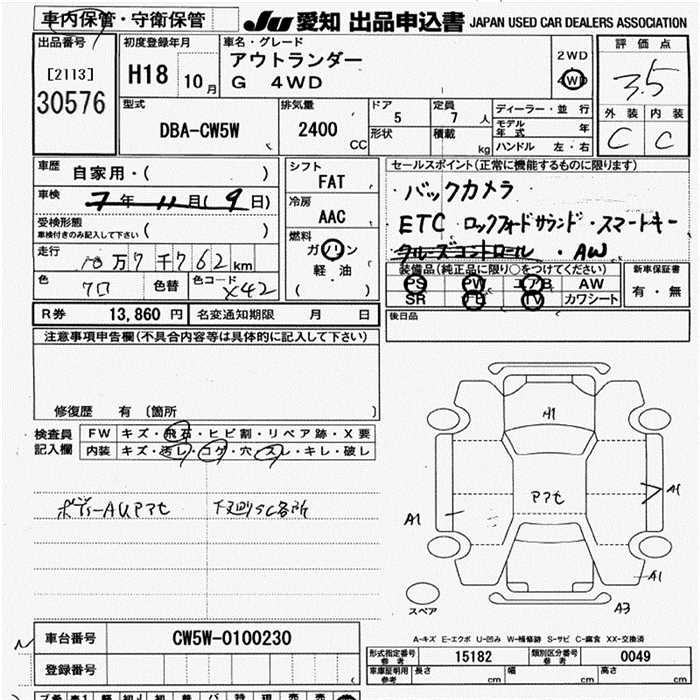 車内保管・守衛保管
JU 愛知 出品申込書 JAPAN USED CAR DEALERS ASSOCIATION
出品番号
[2113]
30576
初度登録年月
H18 10月
車名・グレード
アウトランダー
G 4WD
2WD
4WD
評価点
3.5
外装 内装
C C
型式
DBA-CW5W
排気量
2400 CC
ドア
5
形状
定員
7 人
積載
kg
ディーラー・並行
モデル年式
ハンドル 左・右
車歴 自家用・( )
車検 7年11月(9日)
受検形態
車検付きのみ記入して下さい ( )
走行 10万7千762km
色 クロ 色替 色コード X42
シフト
FAT
冷房
AAC
燃料
ガソリン
軽・油
( )
セールスポイント(正常に機能するものに限ります)
・バックカメラ
ETC ロックフォードサウンド・スマートキー
クルーズコントロール・AW
装備品(純正品に限り○をつけてください)
PS PW エアB AW
SR ナビ TV カワシート
新車保証書
有・無
R券 13,860円 名変通知期限 月 日
後日品
注意事項申告欄(不具合内容等は具体的に記入して下さい)
修復歴 有 〔箇所 〕
検査員記入欄
FW キズ・飛石・ヒビ割・リペア跡・X要
内装 キズ・汚レ・コゲ・穴・スレ・キレ・破レ
ボディーAUアマセ 下廻りSC各所
A1
アマセ
A1
A1
A1
A3
スペア
A-キズ E-エクボ U-凹み W-補修跡 S-サビ C-腐食 XX-交換済
車台番号 CW5W-0100230
登録番号
形式指定番号 参考 15182 類別区分番号 参考 0049
車庫証明用 参考 長さ cm 幅 cm 高さ cm